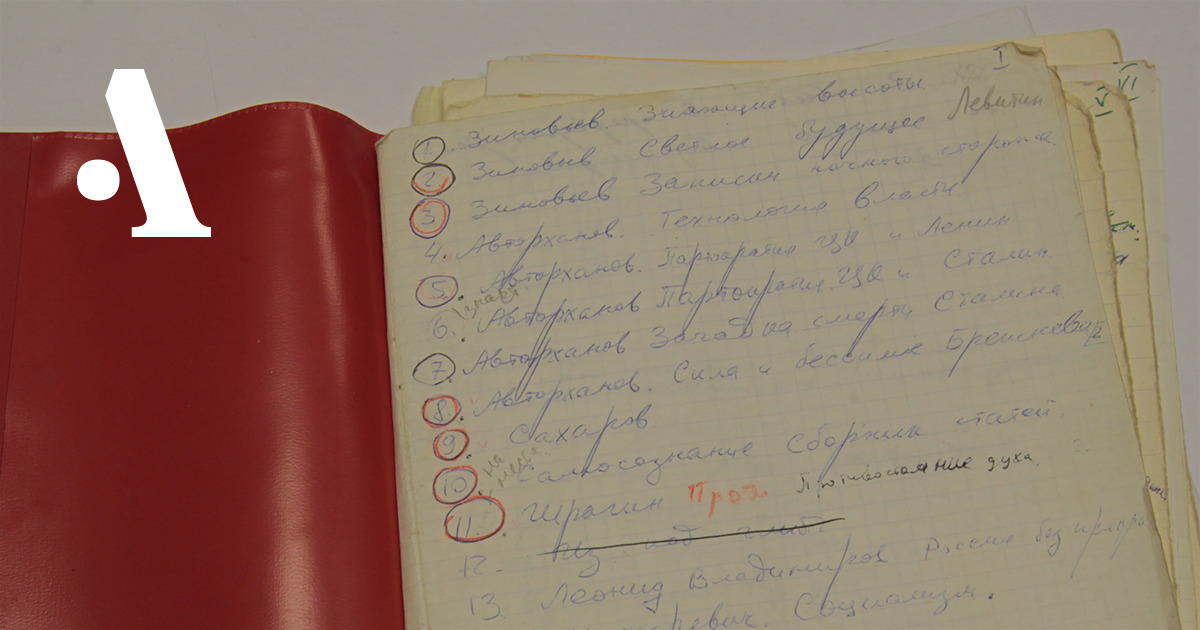 I
1. Зиновьев. Зияющие высоты
Левитин
2. Зиновьев Светлое будущее
3 Зиновьев Записки ночного сторожа.
4. Авторханов. Технология власти
5. Авторханов. Партократия ЦО и Ленин
6. Авторханов Партократия. ЦО и Сталин
7. Авторханов Загадка смерти Сталина
8. Авторханов. Сила и бессилие Брежнева
9. Сахаров
10. на место Самосознание Сборник статей.
11. Шрагин Противостояние духа.
12. Из под глыб
13. Леонид Владимиров Россия без
Социализм.
V
VI